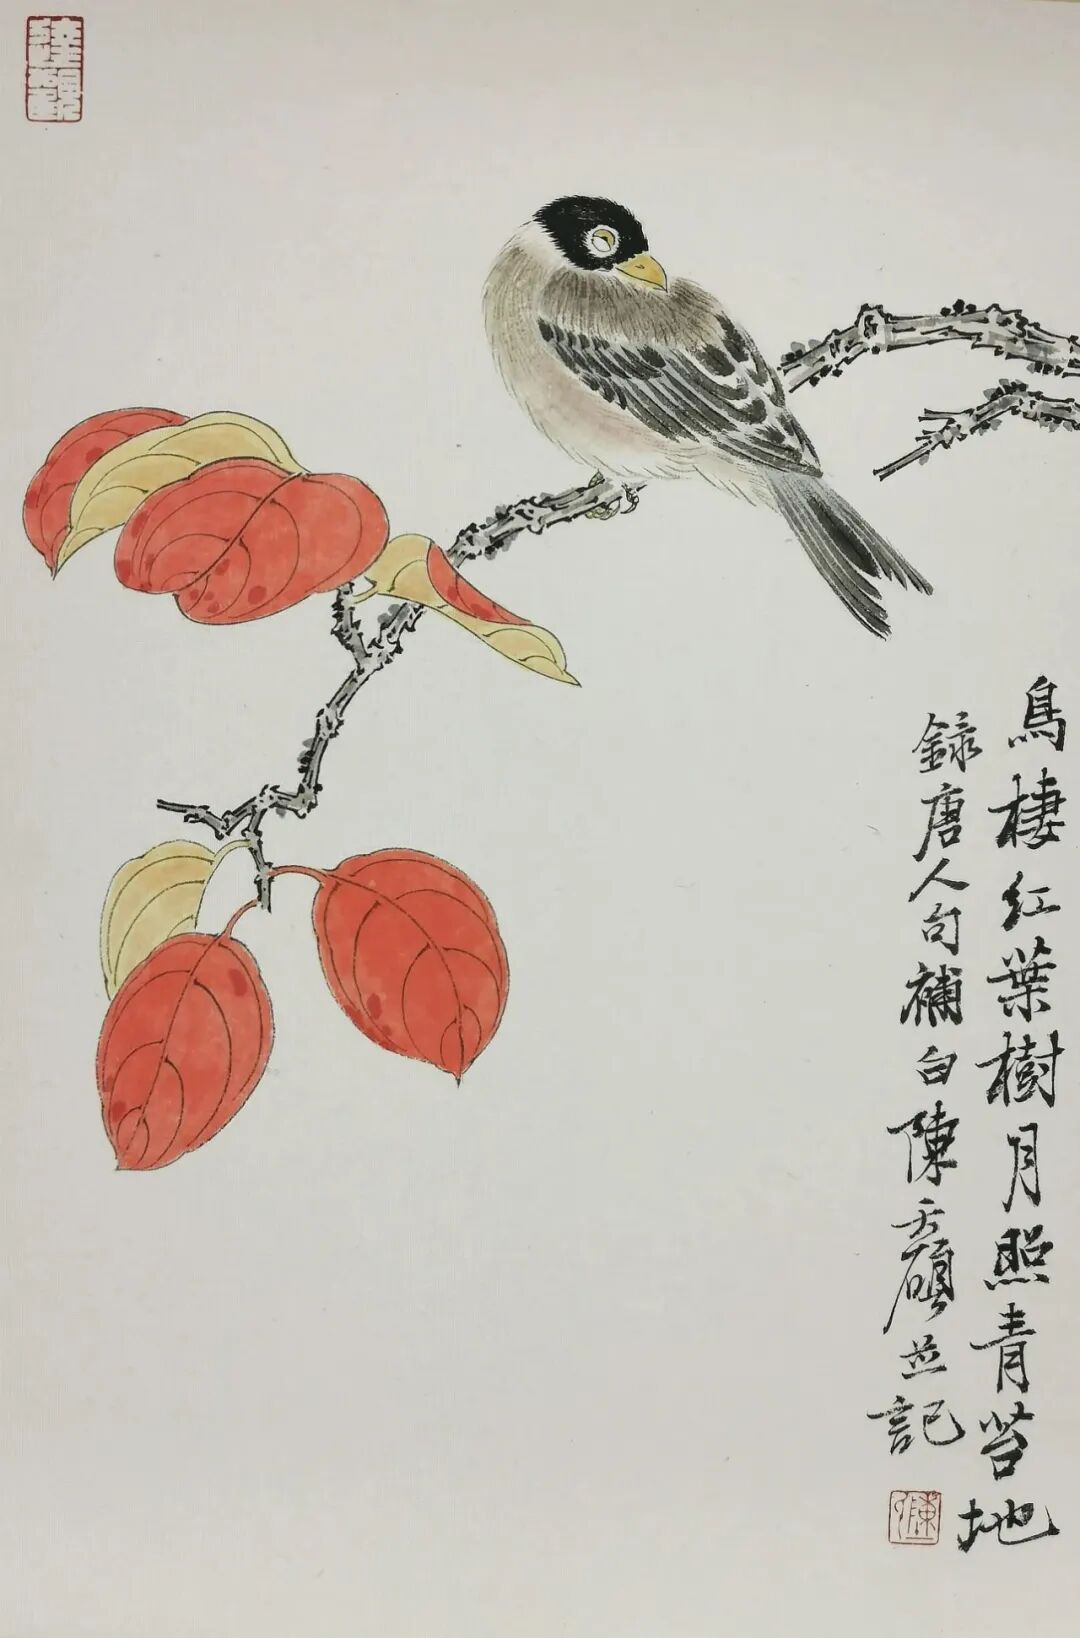 鳥棲紅葉樹月照青苔地
録唐人句補白陳天碩並記
陳